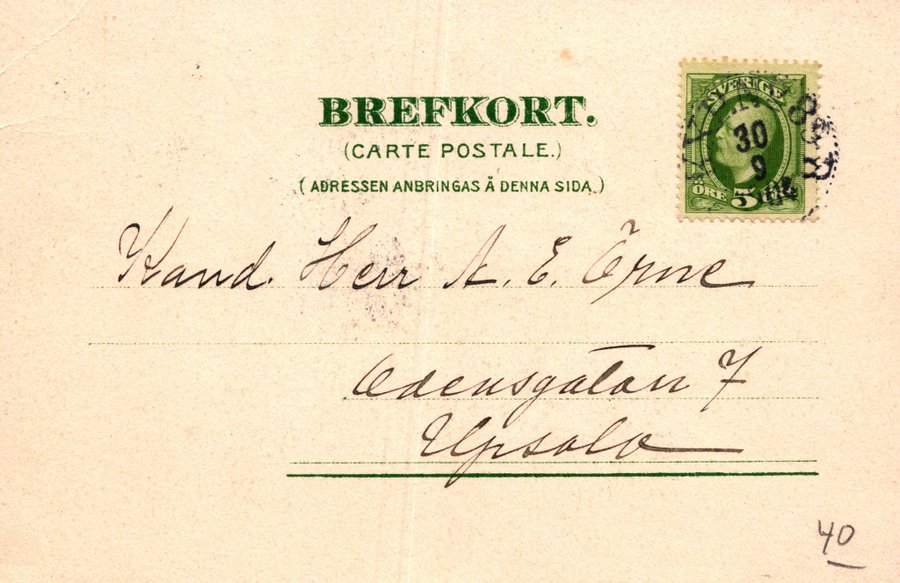 BREFKORT.
(CARTE POSTALE.)
(ADRESSEN ANBRINGAS Å DENNA SIDA.)
SVERIGE
30
9
ÖRE 5
Kand. Herr A. E. Örne
Odensgatan 7
Upsala
40